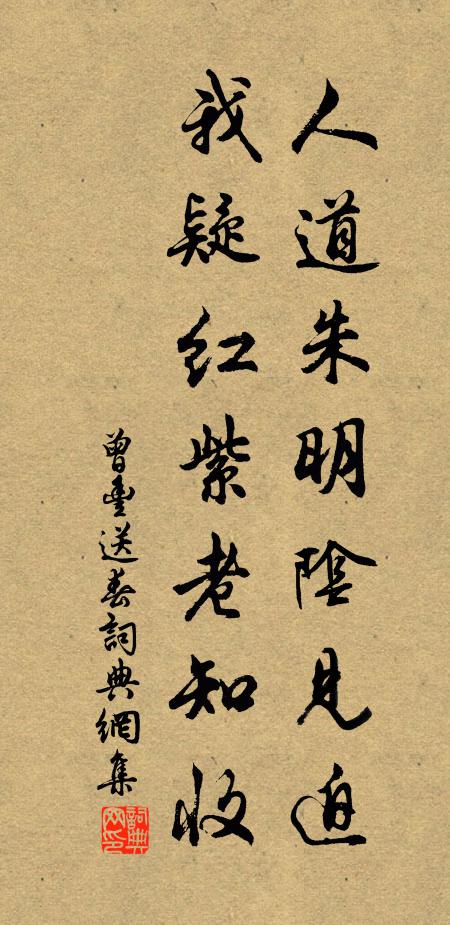 人道朱明陰見迫
我疑紅紫老知收
曾豊送春詞典網集
詞典網印